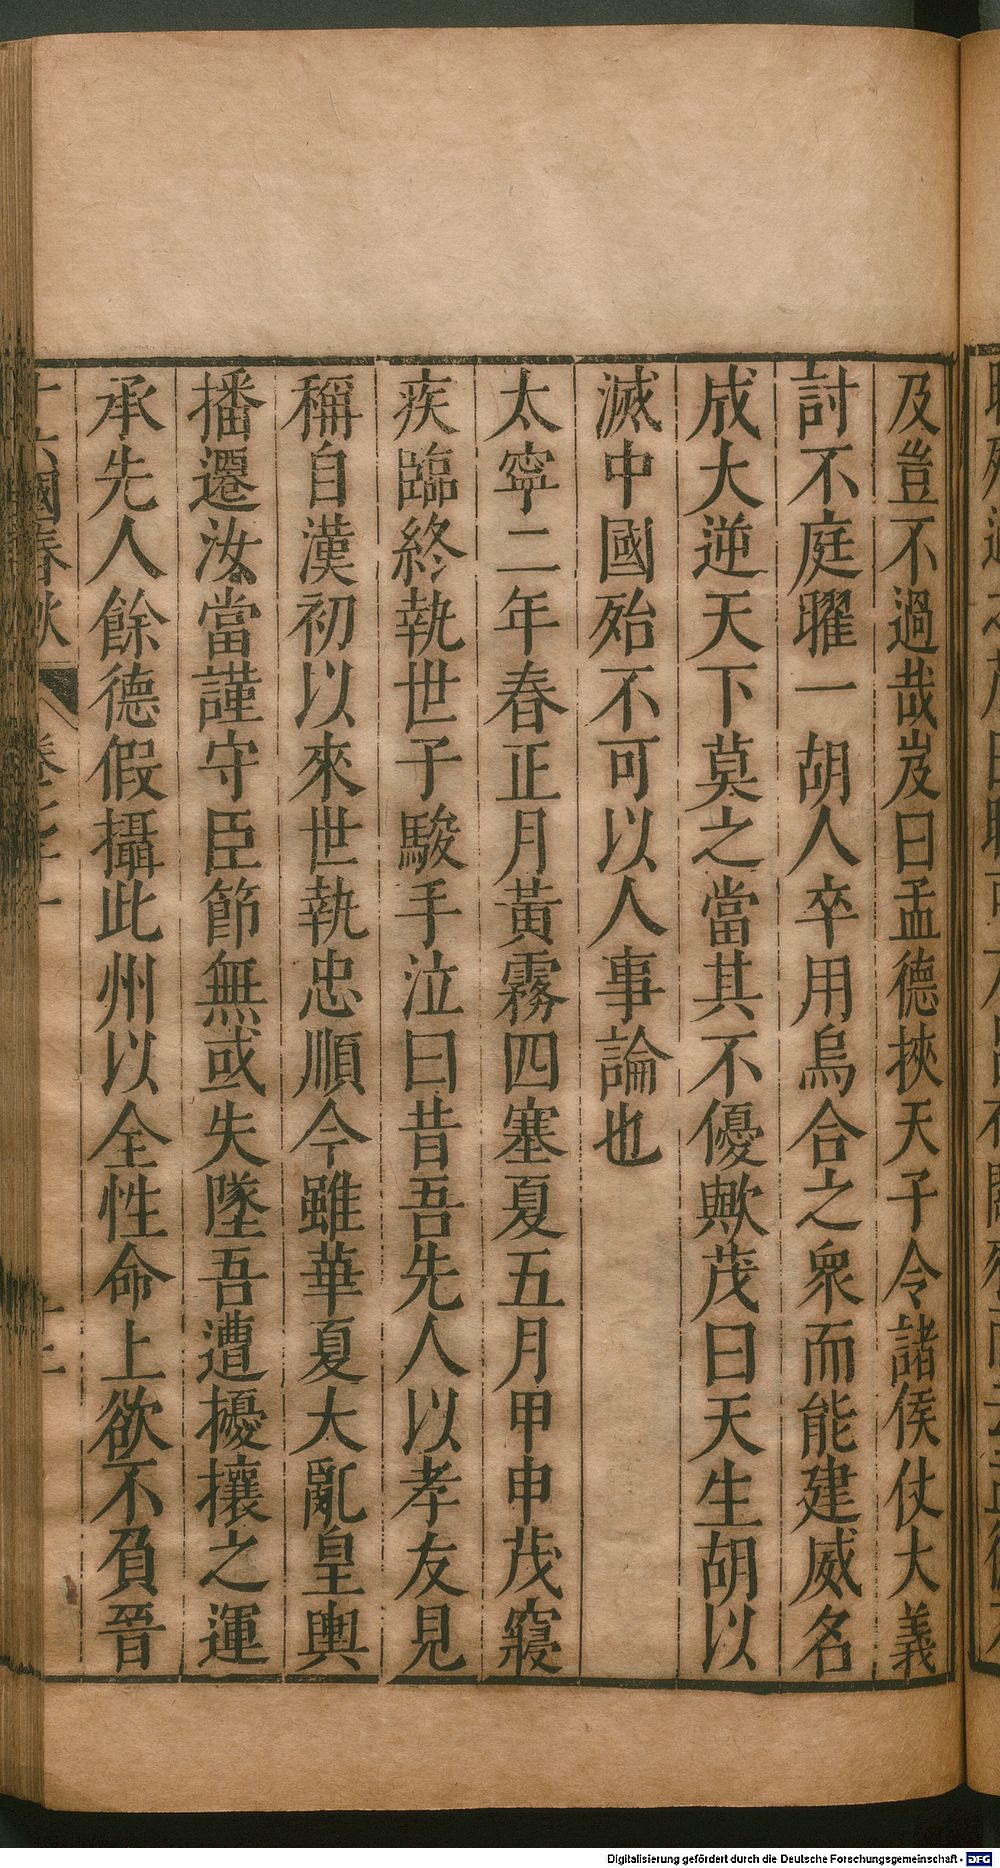 及豈不過哉岌曰孟德挾天子令諸侯仗大義
討不庭曜一胡人卒用烏合之衆而能建威名
成大逆天下莫之當其不優歟茂曰天生胡以
滅中國殆不可以人事論也
太寧二年春正月黃霧四塞夏五月甲申茂寢
疾臨終執世子駿手泣曰昔吾先人以孝友見
稱自漢初以來世執忠順今雖華夏大亂皇輿
播遷汝當謹守臣節無或失墜吾遭擾攘之運
承先人餘德假攝此州以全性命上欲不負晉
十六國春秋
Digitalisierung gefördert durch die Deutsche Forschungsgemeinschaft - DFG